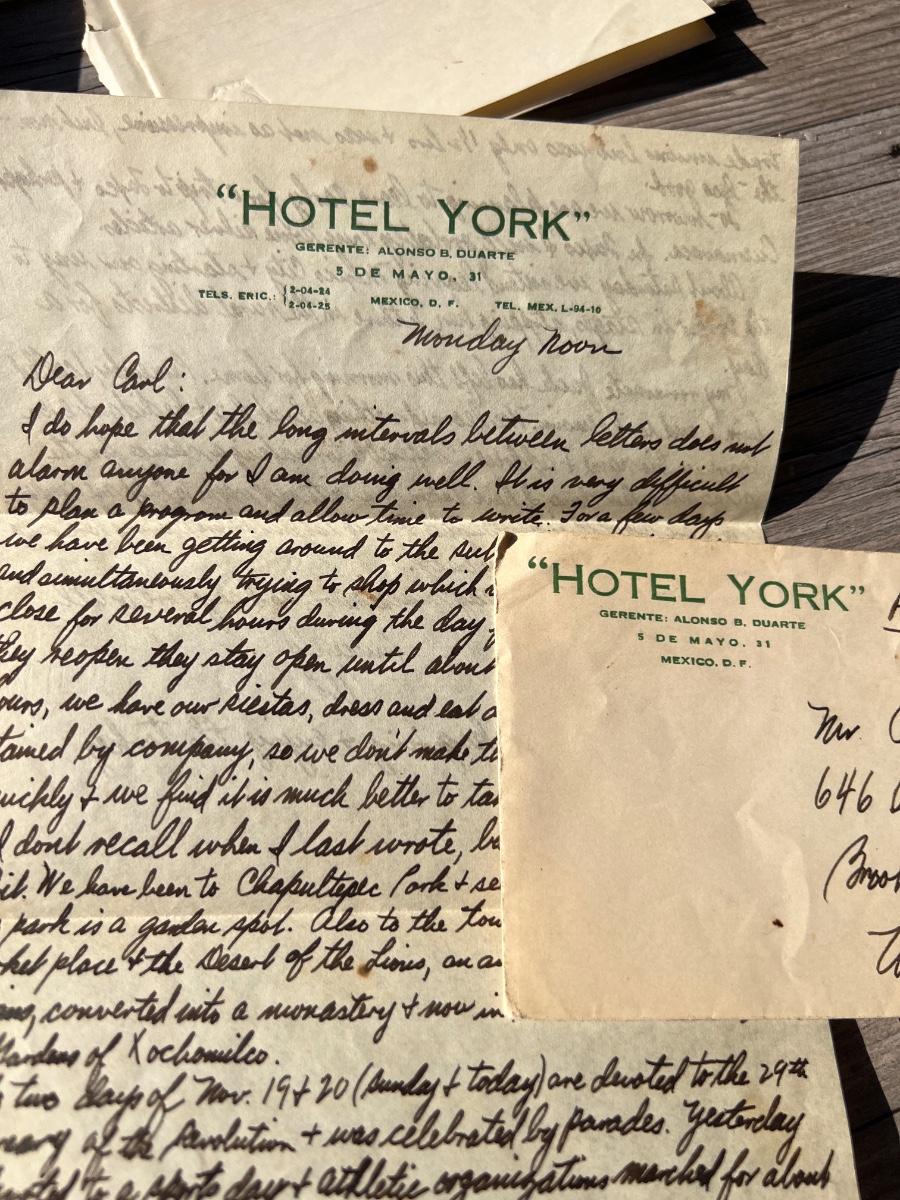 "HOTEL YORK"
GERENTE: ALONSO B. DUARTE
5 DE MAYO, 31
TELS. ERIC.: 2-04-24 2-04-25 MEXICO, D. F. TEL. MEX. L-94-10
Monday Noon
Dear Carl:
I do hope that the long intervals between letters does not
alarm anyone for I am doing well. It is very difficult
to plan a program and allow time to write. For a few days
we have been getting around to the
and simultaneously trying to shop which
close for several hours during the day
they reopen they stay open until about
ours, we have our siestas, dress and eat
tained by company, so we don't make
uickly + we find it is much better to
I dont recall when I last wrote,
it. We have been to Chapultepec Park +
park is a garden spot. Also to the
ket place + the Desert of the Lions, an
converted into a monastery + now in
Gardens of Xochomilco.
two days of Nov. 19 + 20 (Sunday + today) are devoted to the 29th
of the Revolution + was celebrated by parades. Yesterday
to a sports day + athletic organizations marched for about
"HOTEL YORK"
GERENTE: ALONSO B. DUARTE
5 DE MAYO, 31
MEXICO, D. F.
Mr.
646